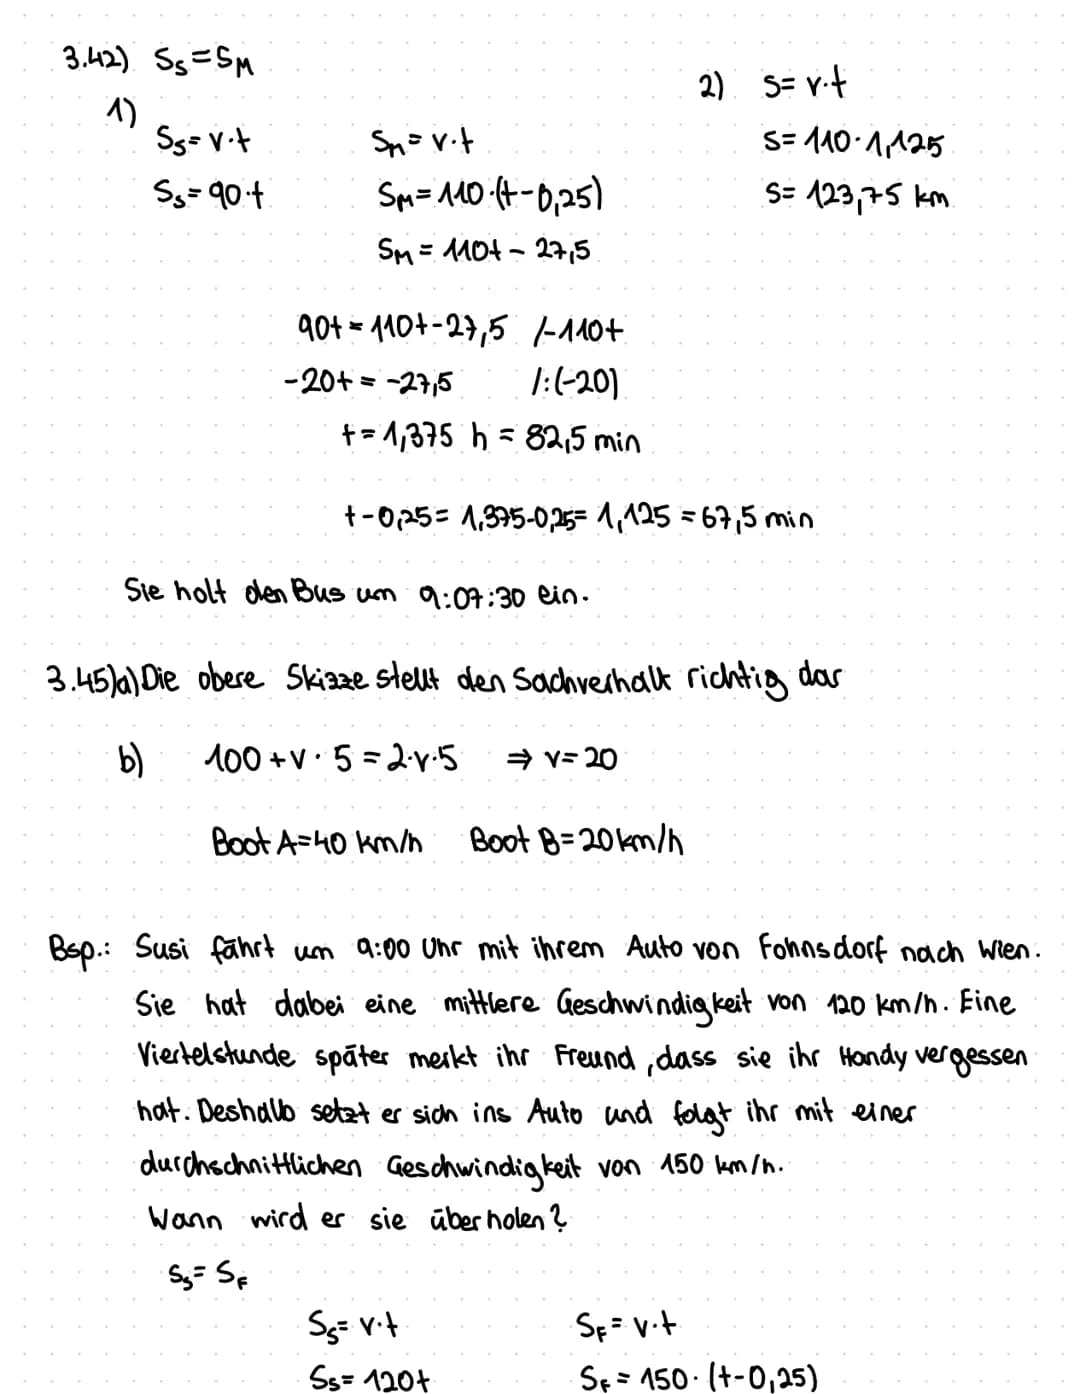 3.42) S_S = S_M
1)
S_S = v·t
S_S = 90·t
S_M = v·t
S_M = 110·(t-0,25)
S_M = 110t - 27,5
2) S = v·t
S = 110·1,125
S = 123,75 km
90t = 110t-27,5 /-110t
-20t = -27,5 /:(-20)
t = 1,375 h = 82,5 min
t-0,25 = 1,375-0,25 = 1,125 = 67,5 min
Sie holt den Bus um 9:07:30 ein.
3.45)a) Die obere Skizze stellt den Sachverhalt richtig dar
b) 100 + v · 5 = 2·v·5 ⇒ v = 20
Boot A = 40 km/h Boot B = 20 km/h
Bsp.: Susi fährt um 9:00 Uhr mit ihrem Auto von Fohnsdorf nach Wien.
Sie hat dabei eine mittlere Geschwindigkeit von 120 km/h. Eine
Viertelstunde später merkt ihr Freund, dass sie ihr Handy vergessen
hat. Deshalb setzt er sich ins Auto und folgt ihr mit einer
durchschnittlichen Geschwindigkeit von 150 km/h.
Wann wird er sie überholen?
S_S = S_F
S_S = v·t
S_S = 120t
S_F = v·t
S_F = 150·(t-0,25)